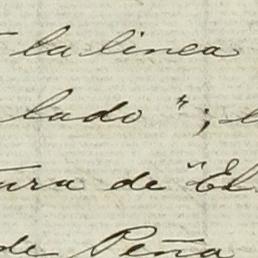 la linea
lado";
tura de "El
de Peña